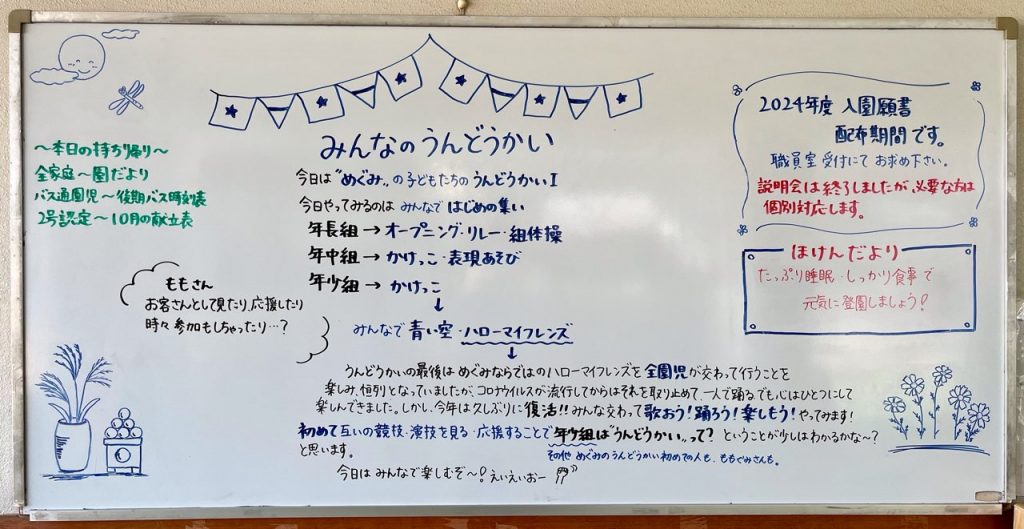 ～本日の持ち帰り～
全家庭～園だより
バス通園児～後期バス時刻表
2号認定～10月の献立表
みんなのうんどうかい
今日は"めぐみ"の子どもたちのうんどうかいI
今日やってみるのは みんなで はじめの集い
年長組→オープニング・リレー・組体操
年中組→かけっこ・表現あそび
年少組→かけっこ
↓
みんなで 青い空・ハローマイフレンズ
↓
ももさん
お客さんとして見たり、応援したり
時々参加もしちゃったり…?
うんどうかいの最後は めぐみならではのハローマイフレンズを全園児が交わって行うことを
楽しみ、恒例となっていましたが、コロナウイルスが流行してからはそれを取り止めて、一人で踊る、でも心はひとつにして
楽しんできました。しかし、今年は久しぶりに復活!! みんな交わって歌おう!踊ろう!楽しもう!やってみます!
初めて互いの競技・演技を見る・応援することで年少組は"うんどうかい"って? ということが少しはわかるかな～?
と思います。
その他 めぐみのうんどうかい初めての人も、ももぐみさんも。
今日は みんなで楽しむぞ～! えいえいおー
2024年度 入園願書
配布期間です。
職員室受付にて お求め下さい。
説明会は終了しましたが、必要な方は
個別対応します。
ほけんだより
たっぷり睡眠・しっかり食事で
元気に登園しましょう!